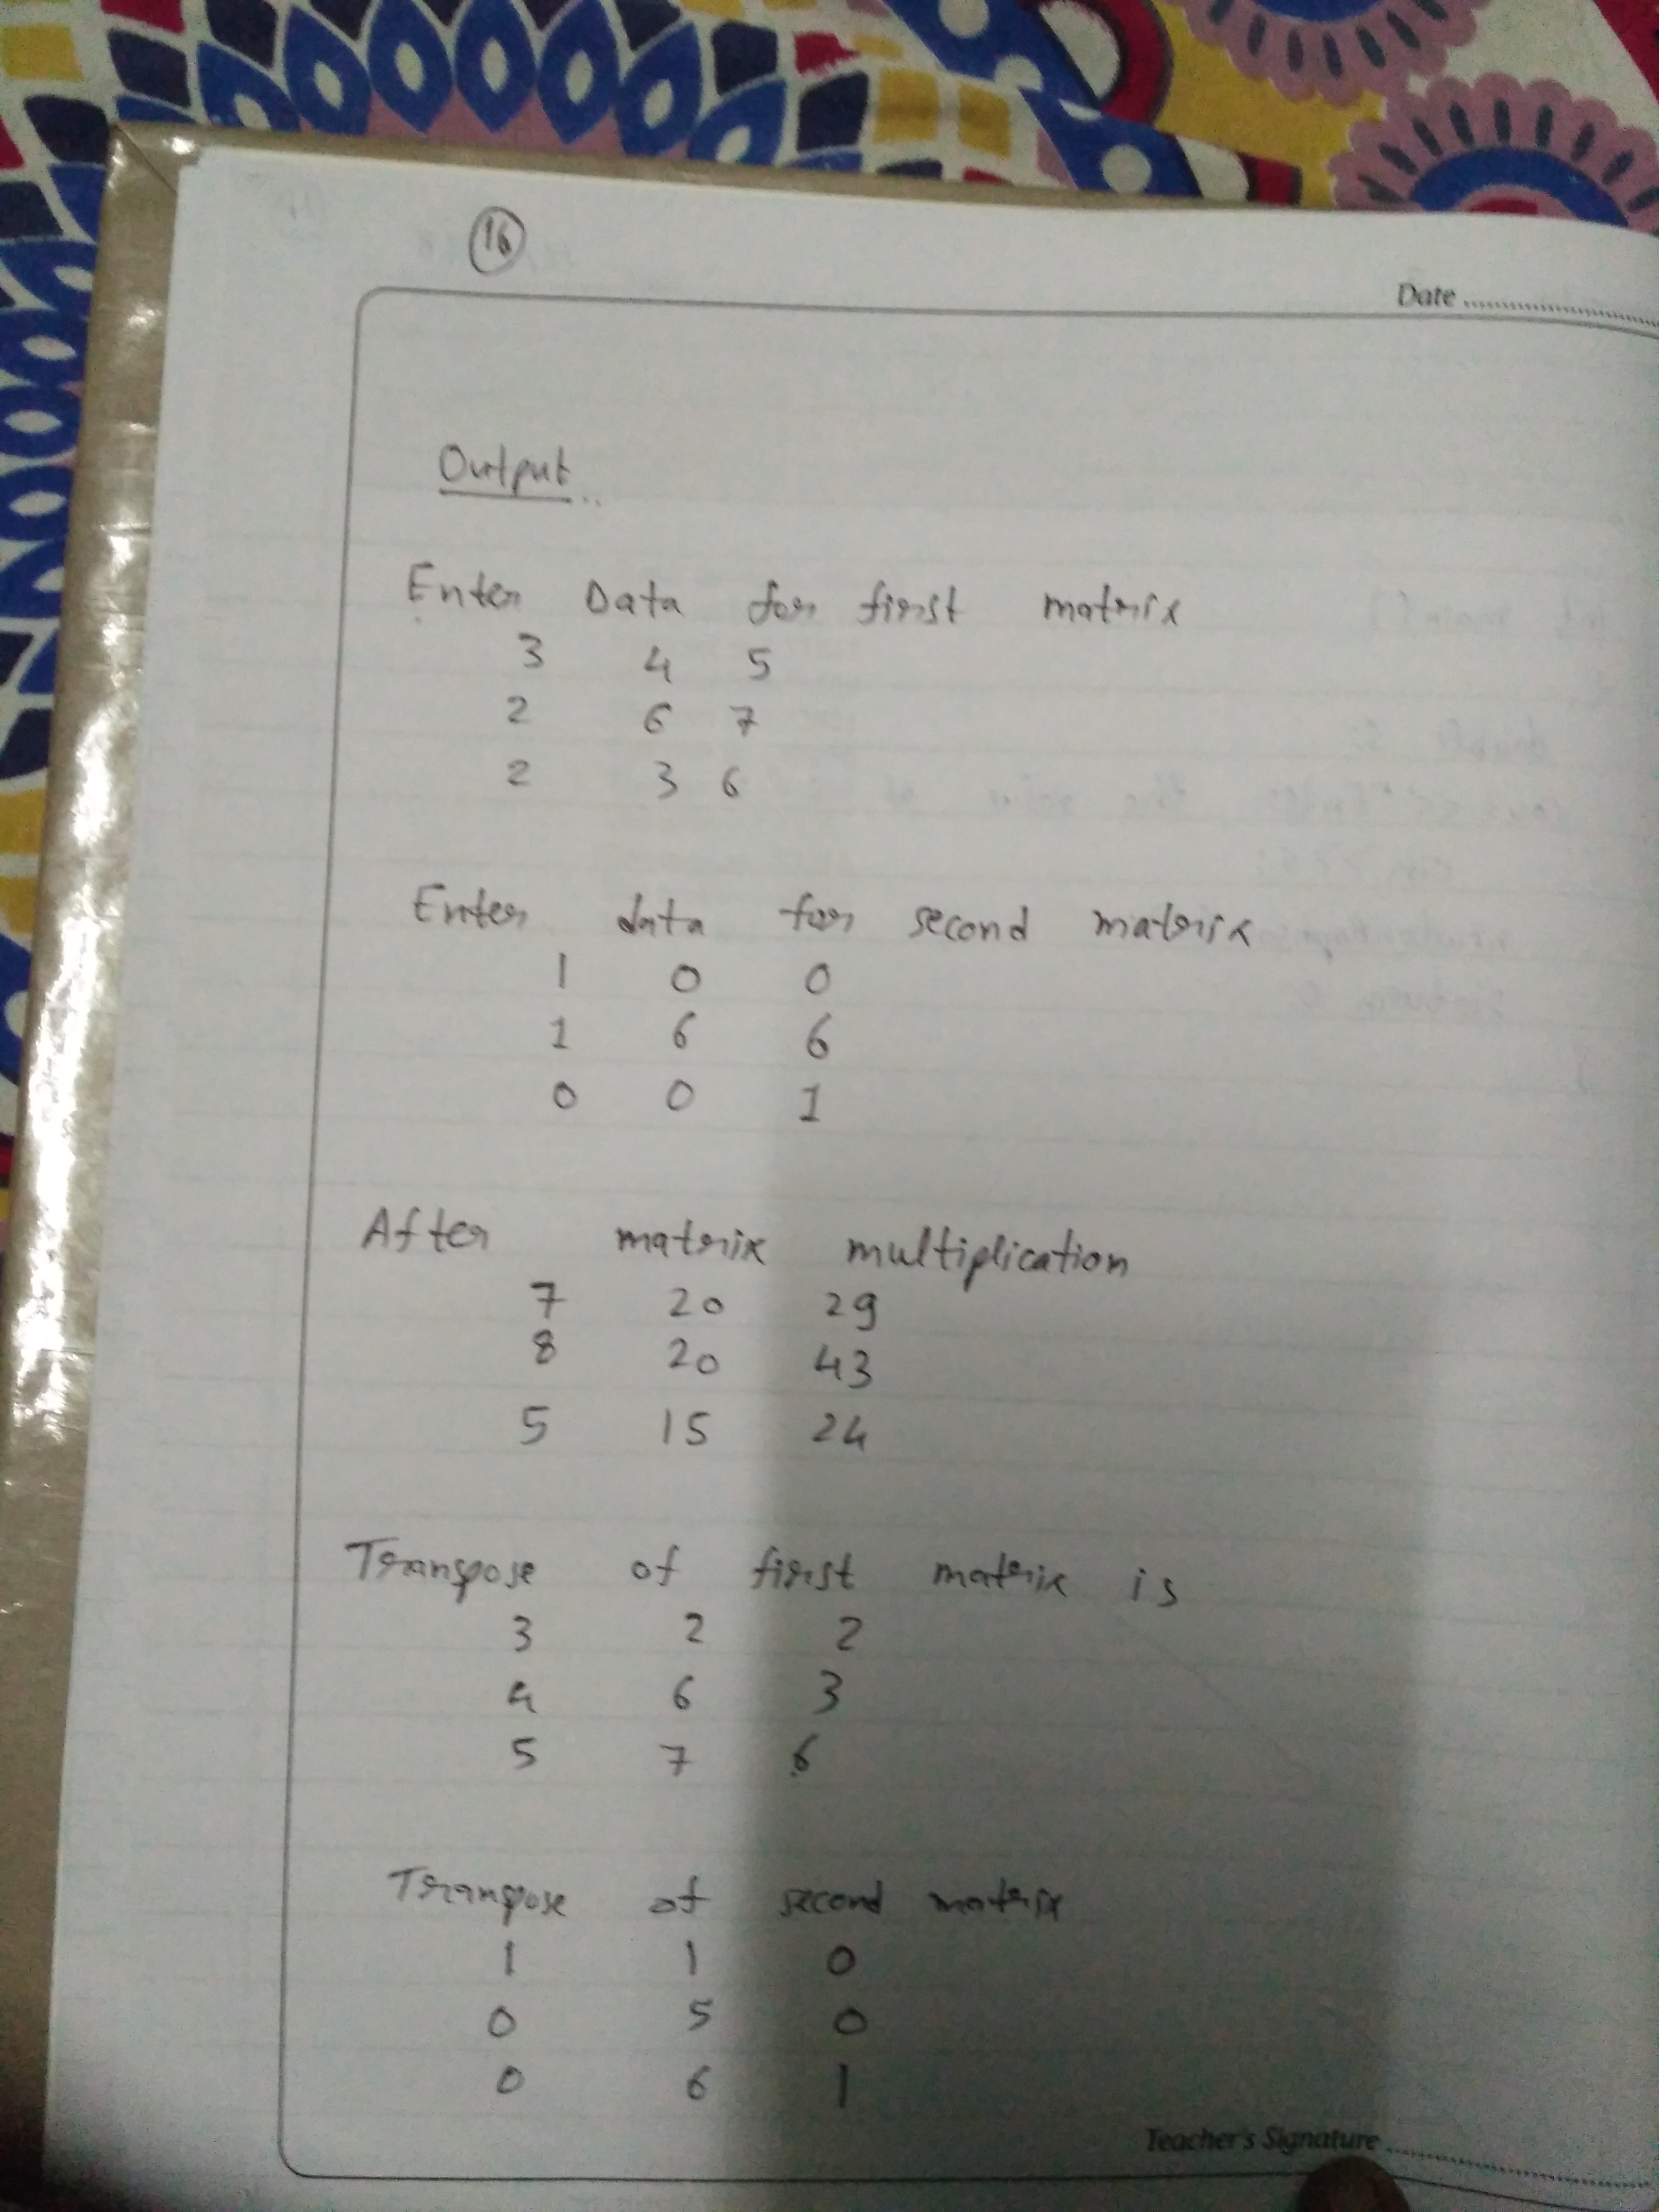 16
Date
Output
Enter Data for first matrix
3 4 5
2 6 7
2 3 6
Enter data for second matrix
1 0 0
1 6 6
0 0 1
After matrix multiplication
7 20 29
8 20 43
5 15 24
Transpose of first matrix is
3 2 2
4 6 3
5 7 6
Transpose of second matrix
1 1 0
0 5 0
0 6 1
Teacher's Signature